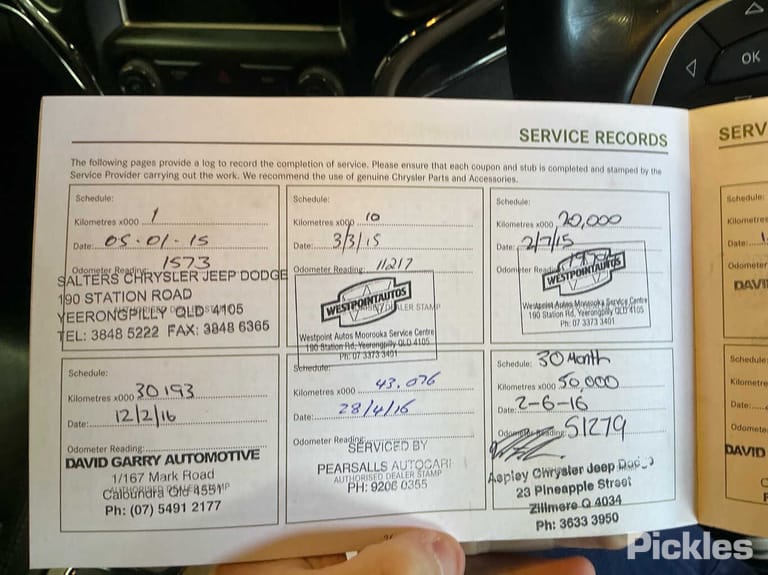 OK
SERVICE RECORDS
The following pages provide a log to record the completion of service. Please ensure that each coupon and stub is completed and stamped by the
Service Provider carrying out the work. We recommend the use of genuine Chrysler Parts and Accessories.
Schedule:
Kilometres x000 1
Date: 05-01-15
Odometer Reading: 1573
SALTERS CHRYSLER JEEP DODGE
190 STATION ROAD
YEERONGPILLY QLD 4105
TEL: 3848 5222 FAX: 3848 6365
Schedule:
Kilometres x000 10
Date: 3/3/15
Odometer Reading: 11217
WESTPOINTAUTOS
DEALER STAMP
Westpoint Autos Moorooka Service Centre
190 Station Rd, Yeerongpilly QLD 4105
Ph: 07 3373 3401
Schedule:
Kilometres x000 20,000
Date: 2/7/15
Odometer Reading:
WESTPOINTAUTOS
Westpoint Autos Moorooka Service Centre
190 Station Rd, Yeerongpilly QLD 4105
Ph: 07 3373 3401
Schedule:
Kilometres x000 30193
Date: 12/2/16
Odometer Reading:
DAVID GARRY AUTOMOTIVE
1/167 Mark Road
Caloundra Qld 4551
Ph: (07) 5491 2177
Schedule:
Kilometres x000 43.076
Date: 28/4/16
Odometer Reading:
SERVICED BY
PEARSALLS AUTOCARE
AUTHORISED DEALER STAMP
PH: 9206 0355
Schedule: 30 Month
Kilometres x000 50,000
Date: 2-6-16
Odometer Reading: 51279
Aspley Chrysler Jeep Dodge
23 Pineapple Street
Zillmere Q 4034
Ph: 3633 3950
SERV
Schedule:
Kilometres
Date:
Odometer
DAVID
Schedule:
Kilometre
Date:
Odomete
DAVID
Pickles